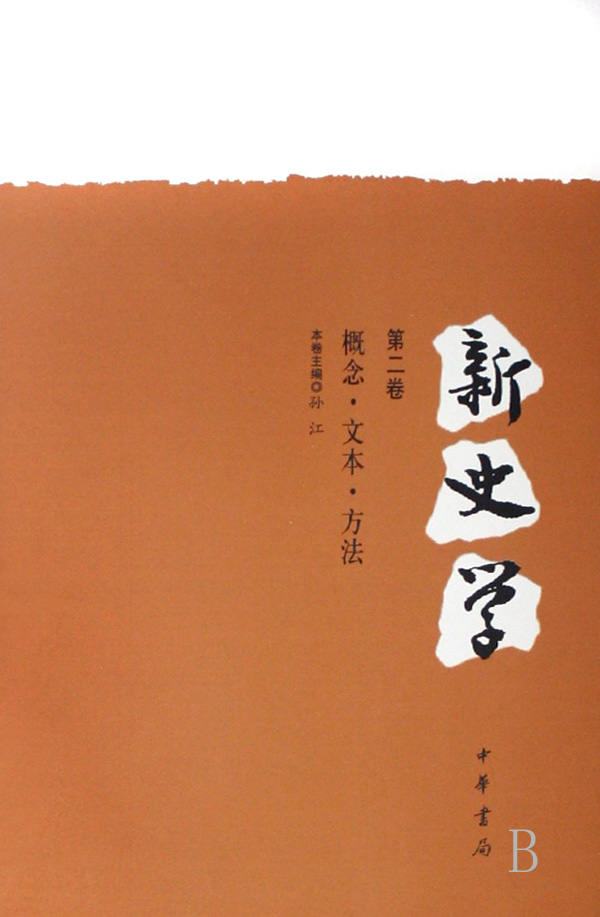 新史学
第二卷
概念·文本·方法
本卷主编◎孙江
中華書局
B